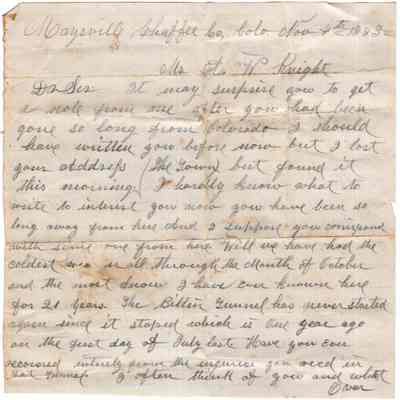 Maysville Chaffee Co, Colo Nov 4th 1883
Mr. A. W. Knight
Dr Sir It may surprise you to get
a note from me after you had been
gone so long from Colorado I should
have written you before now but I lost
your address (The Town) but found it
this morning. I hardly know what to
write to interest you now you have been so
long away from here And I suppose you correspond
with some one from here Well we have had the
coldest weather all through the Month of October
and the most snow I have ever known here
for 21 Years. The Bitter Tunnel has never started
again since it stoped which is One year ago
on the first day of July last Have you ever
recovered intirely from the injuries you recd in
that Tunnel I often think of you and what
Over